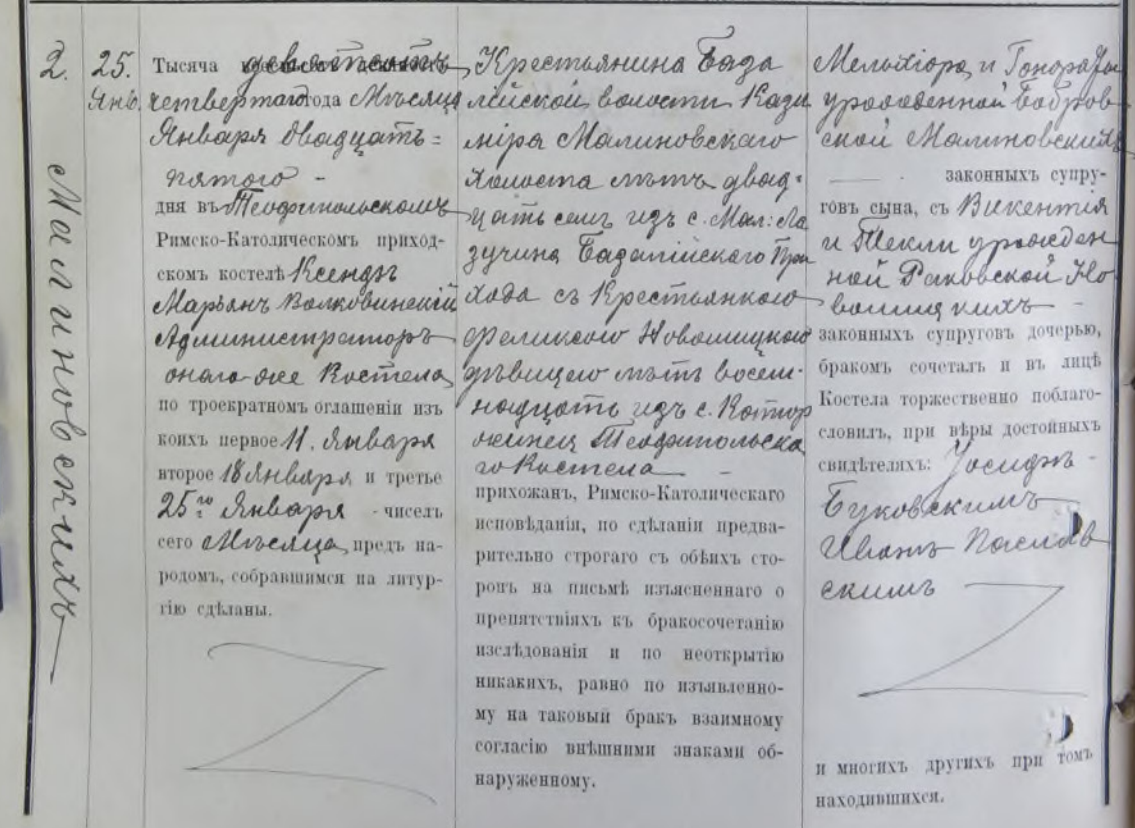 2.
Малиновскихъ
25.
Янв.
Тысяча девятьсотъ
четвертаго года Мѣсяца
Января двадцать=
пятого -
дня въ Теофипольскомъ
Римско-Католическомъ приход-
скомъ костелѣ Ксендзъ
Марьянъ Волковинскій
Администраторъ
оного-же Костела
по троекратномъ оглашеніи изъ
коихъ первое 11. Января
второе 18 Января и третье
25го Января - чиселъ
сего Мѣсяца предъ на-
родомъ, собравшимся на литур-
гію сдѣланы.
Крестьянина База
лійской волости Кази
міра Малиновскаго
холоста лѣтъ двад-
цать семь изъ с. Мал: Ла
зучина Базалійскаго При
хода съ Крестьянкою
Феликсою Новошицкою
дѣвицею лѣтъ восем-
надцать изъ с.
Теофипольска
го Костела
прихожан, Римско-Католическаго
исповѣданія, по сдѣланіи предва-
рительно строгаго съ обѣихъ сто-
ронъ на письмѣ изъясненнаго о
препятствіяхъ къ бракосочетанію
изслѣдованія и по неоткрытію
никакихъ, равно по изъявленно-
му на таковый бракъ взаимному
согласію внѣшними знаками об-
наруженному.
Мельхіора и Гонораты
урожденной Бобров-
ской Малиновскихъ
законныхъ супру-
говъ сына, съ Викентія
и Текли урожден
ной Раковской Но
вошицкихъ -
законныхъ супруговъ дочерью,
бракомъ сочеталъ и въ лицѣ
Костела торжественно поблаго-
словилъ, при вѣры достойныхъ
свидѣтеляхъ: Іосифъ -
Буковскимъ
Иванъ
скимъ
и многихъ другихъ при томъ
находившихся.